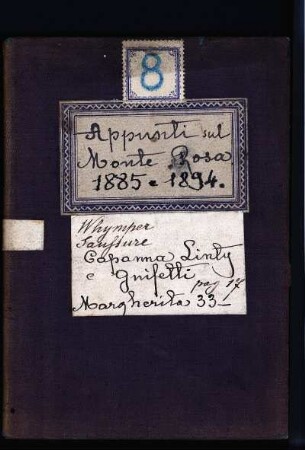 8
Appunti sul
Monte Rosa
1885 e 1894.
Whymper
Saussure
Capanna Linty
e Gnifetti
pag 17
Margherita 33